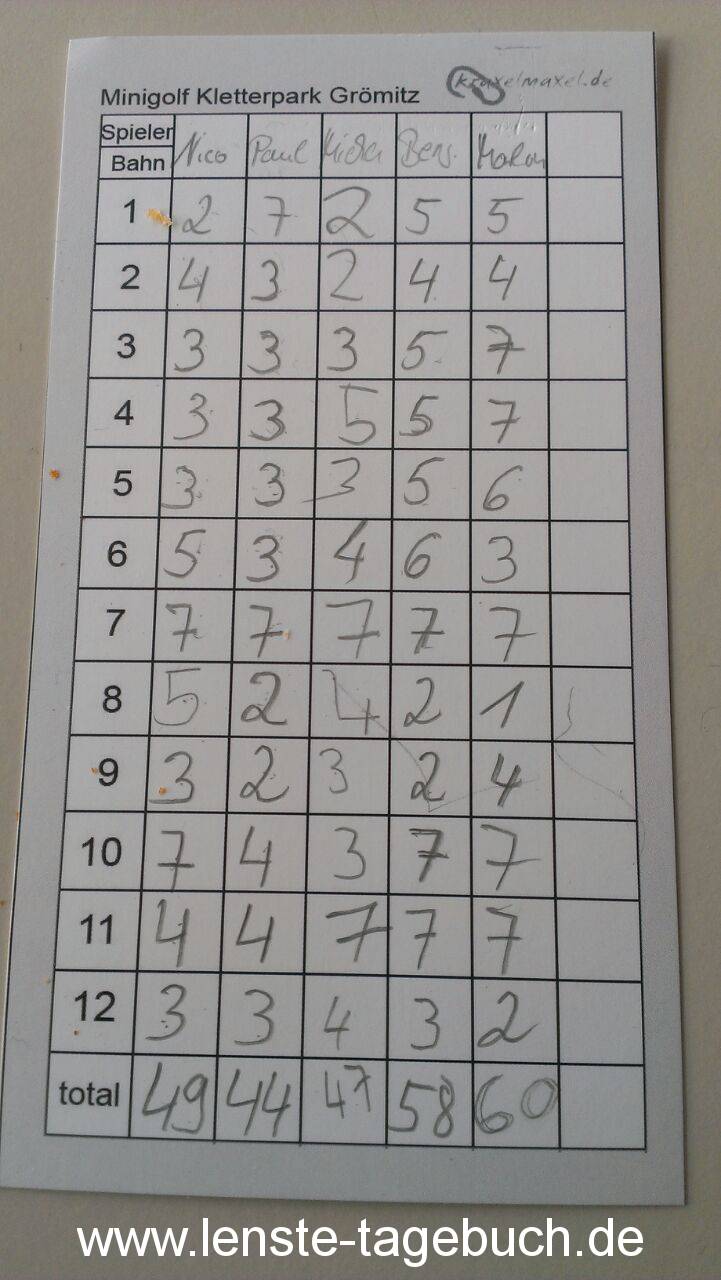 kraxelmaxel.de
Minigolf Kletterpark Grömitz
Spieler Nico Paul Micha Benj.
Bahn
1 2 7 2 5 5
2 4 3 2 4 4
3 3 3 3 5 7
4 3 3 5 5 7
5 3 3 3 5 6
6 5 3 4 6 3
7 7 7 7 7 7
8 5 2 4 2 1
9 3 2 3 2 4
10 7 4 3 7 7
11 4 4 7 7 7
12 3 3 4 3 2
total 49 44 47 58 60
www.lenste-tagebuch.de